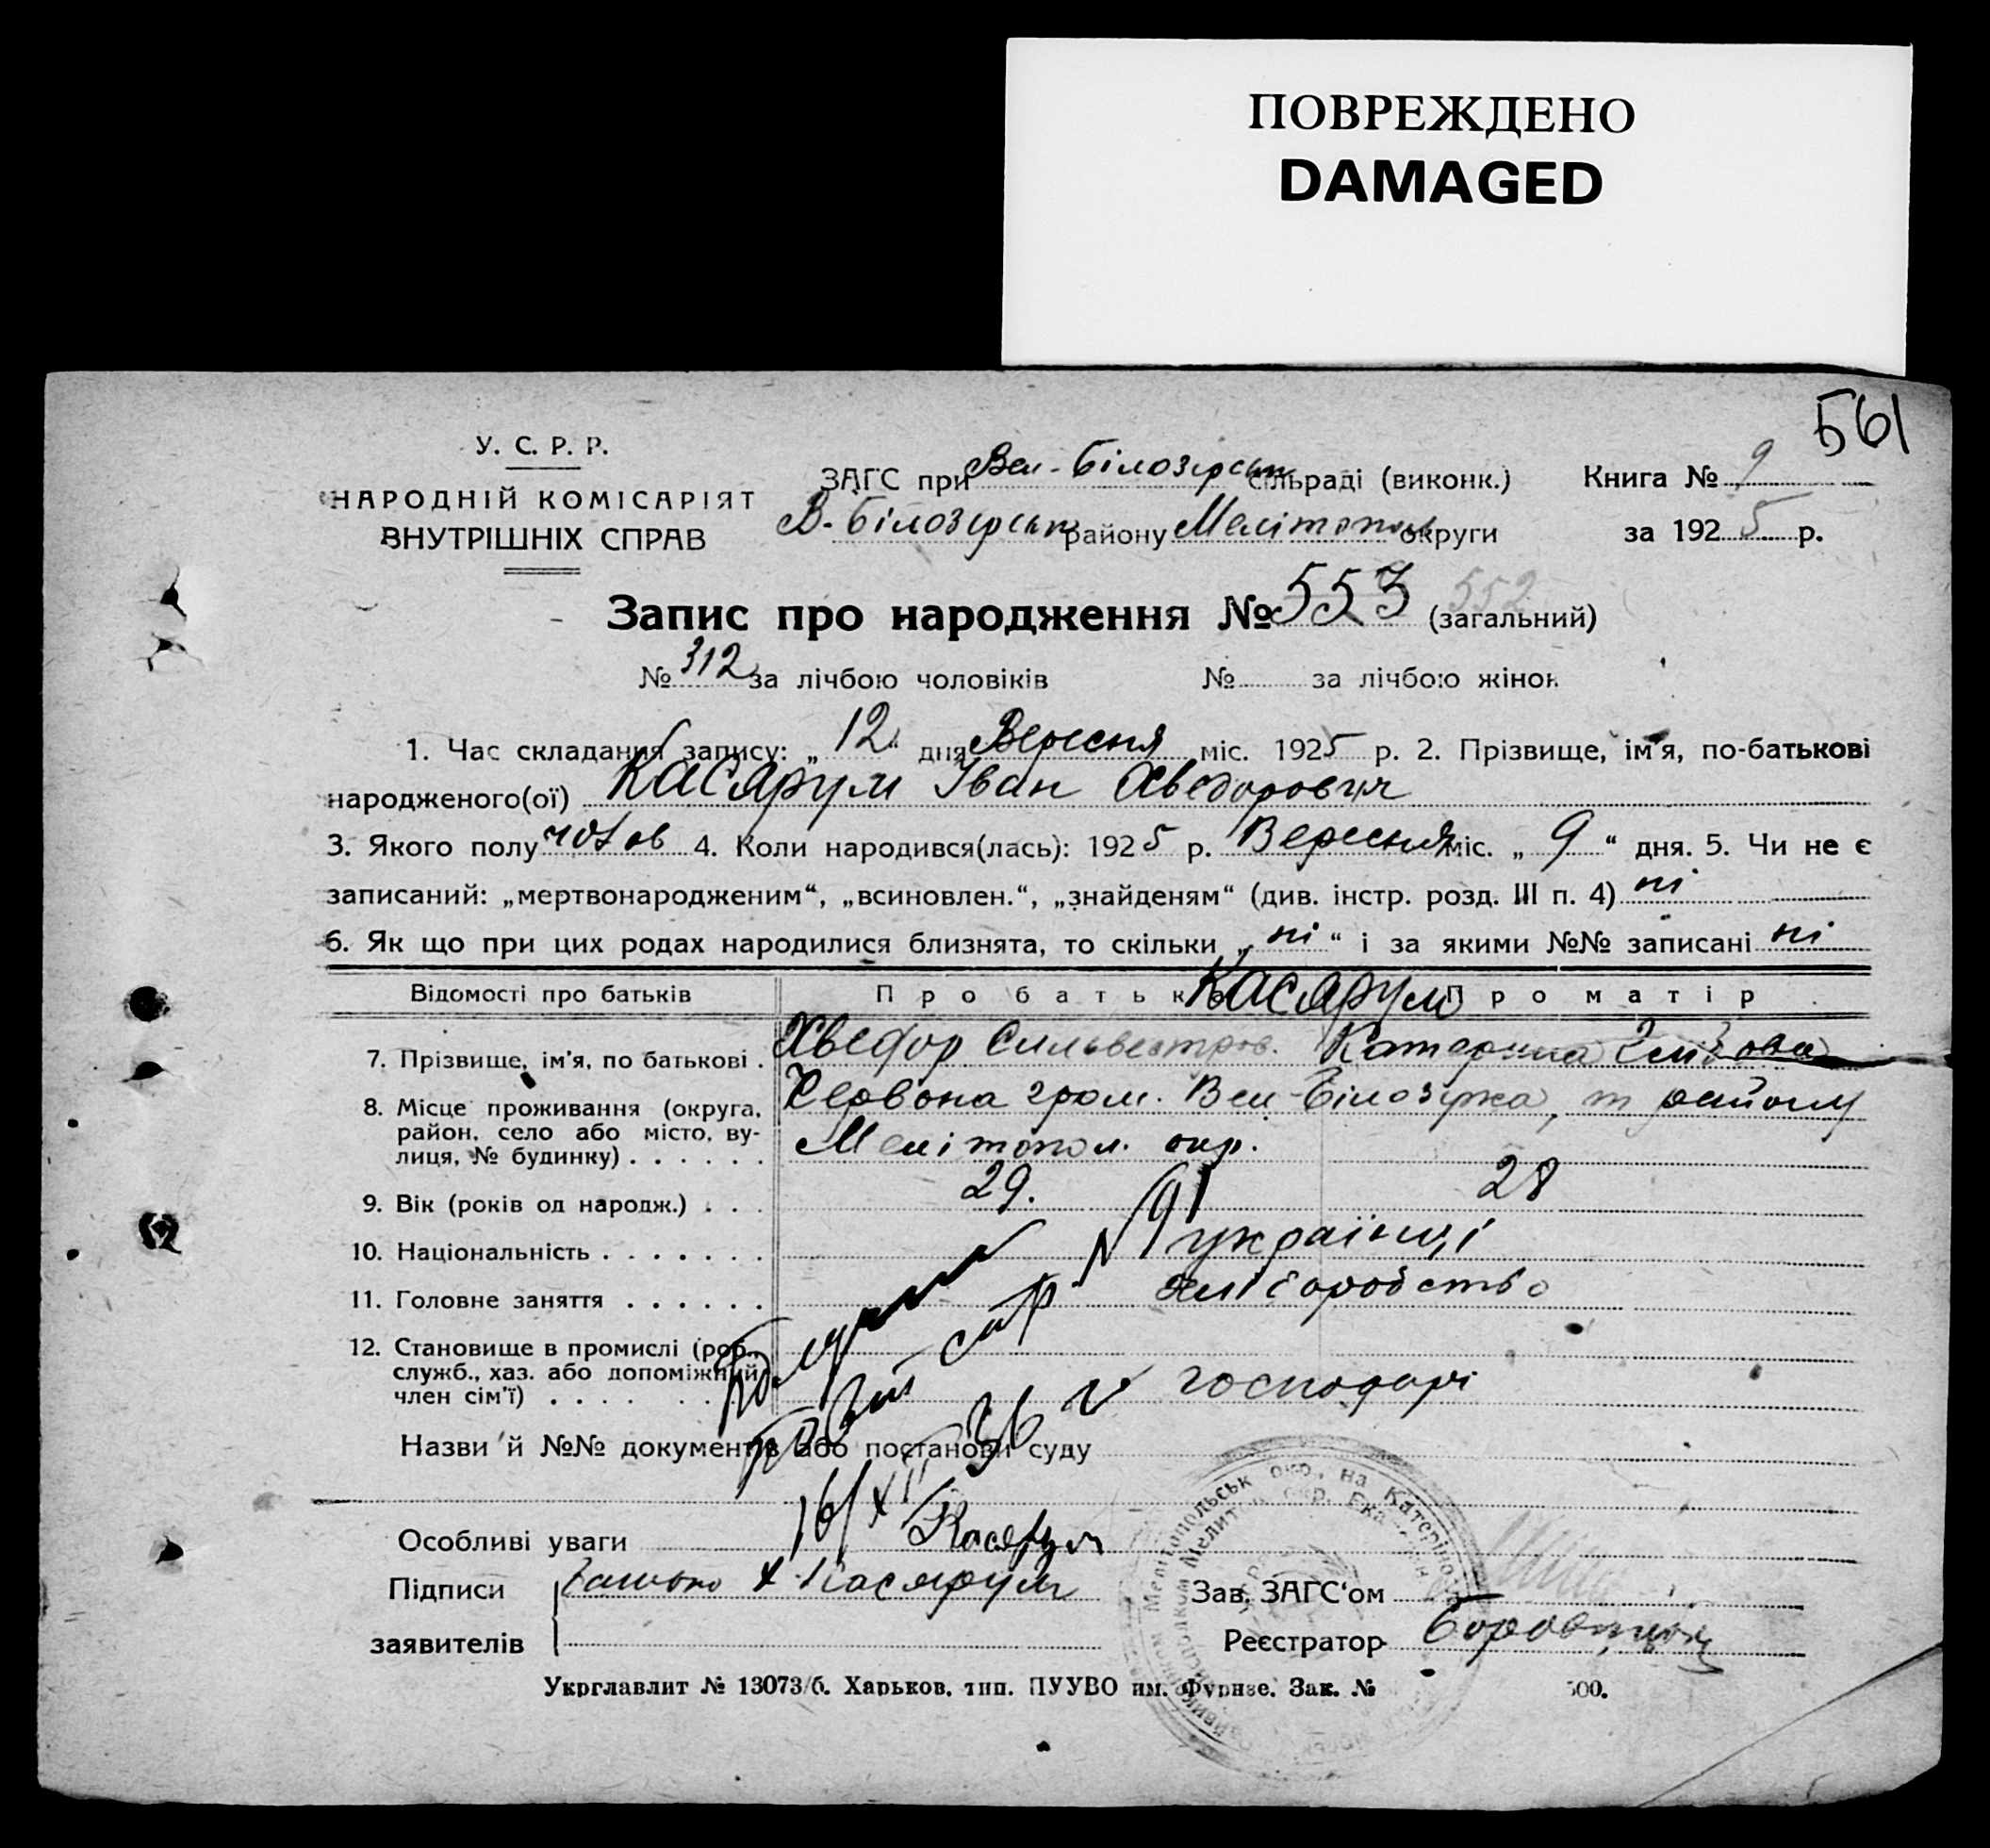 ПОВРЕЖДЕНО
DAMAGED
561
У. С. Р. Р.
НАРОДНІЙ КОМІСАРІЯТ
ВНУТРІШНІХ СПРАВ
ЗАГС при Вел-Білозірськ сільраді (виконк.)
В-Білозірськ району Мелітопол округи
Книга № 9
за 1925 р.
Запис про народження № 553 552 (загальний)
№ 312 за лічбою чоловіків № за лічбою жінок
1. Час складання запису: „12“ дня Вересня міс. 1925 р. 2. Прізвище, ім'я, по-батькові
народженого(ої) Касярум Іван Хведорович
3. Якого полу чолов 4. Коли народився(лась): 1925 р. Вересня міс. „9“ дня. 5. Чи не є
записаний: „мертвонародженим“, „всиновлен.“, „знайденям“ (див. інстр. розд. III п. 4) ні
6. Як що при цих родах народилися близнята, то скільки „ні“ і за якими №№ записані ні
Відомості про батьків Про батька Про матір
Касярум
7. Прізвище, ім'я, по батькові . Хведор Сильвестров. Катерина
8. Місце проживання (округа, Червона гром. Вел-Білозірка, т району
район, село або місто, ву-
лиця, № будинку) . . . . . . Мелітопол. окр.
9. Вік (років од народж.) . . . 29. 28
10. Національність . . . . . . . українці
11. Головне заняття . . . . . . хліборобство
12. Становище в промислі (роб.,
служб., хаз. або допоміжний
член сім'ї) . . . . господарі
Назви й №№ документів або постанови суду
16/XII 36
Касярум
Особливі уваги
Підписи батько х Касярум
заявителів
Зав. ЗАГС'ом
Реєстратор
Укрглавлит № 13073/б. Харьков, тип. ПУУВО им. Фрунзе. Зак. № 500.